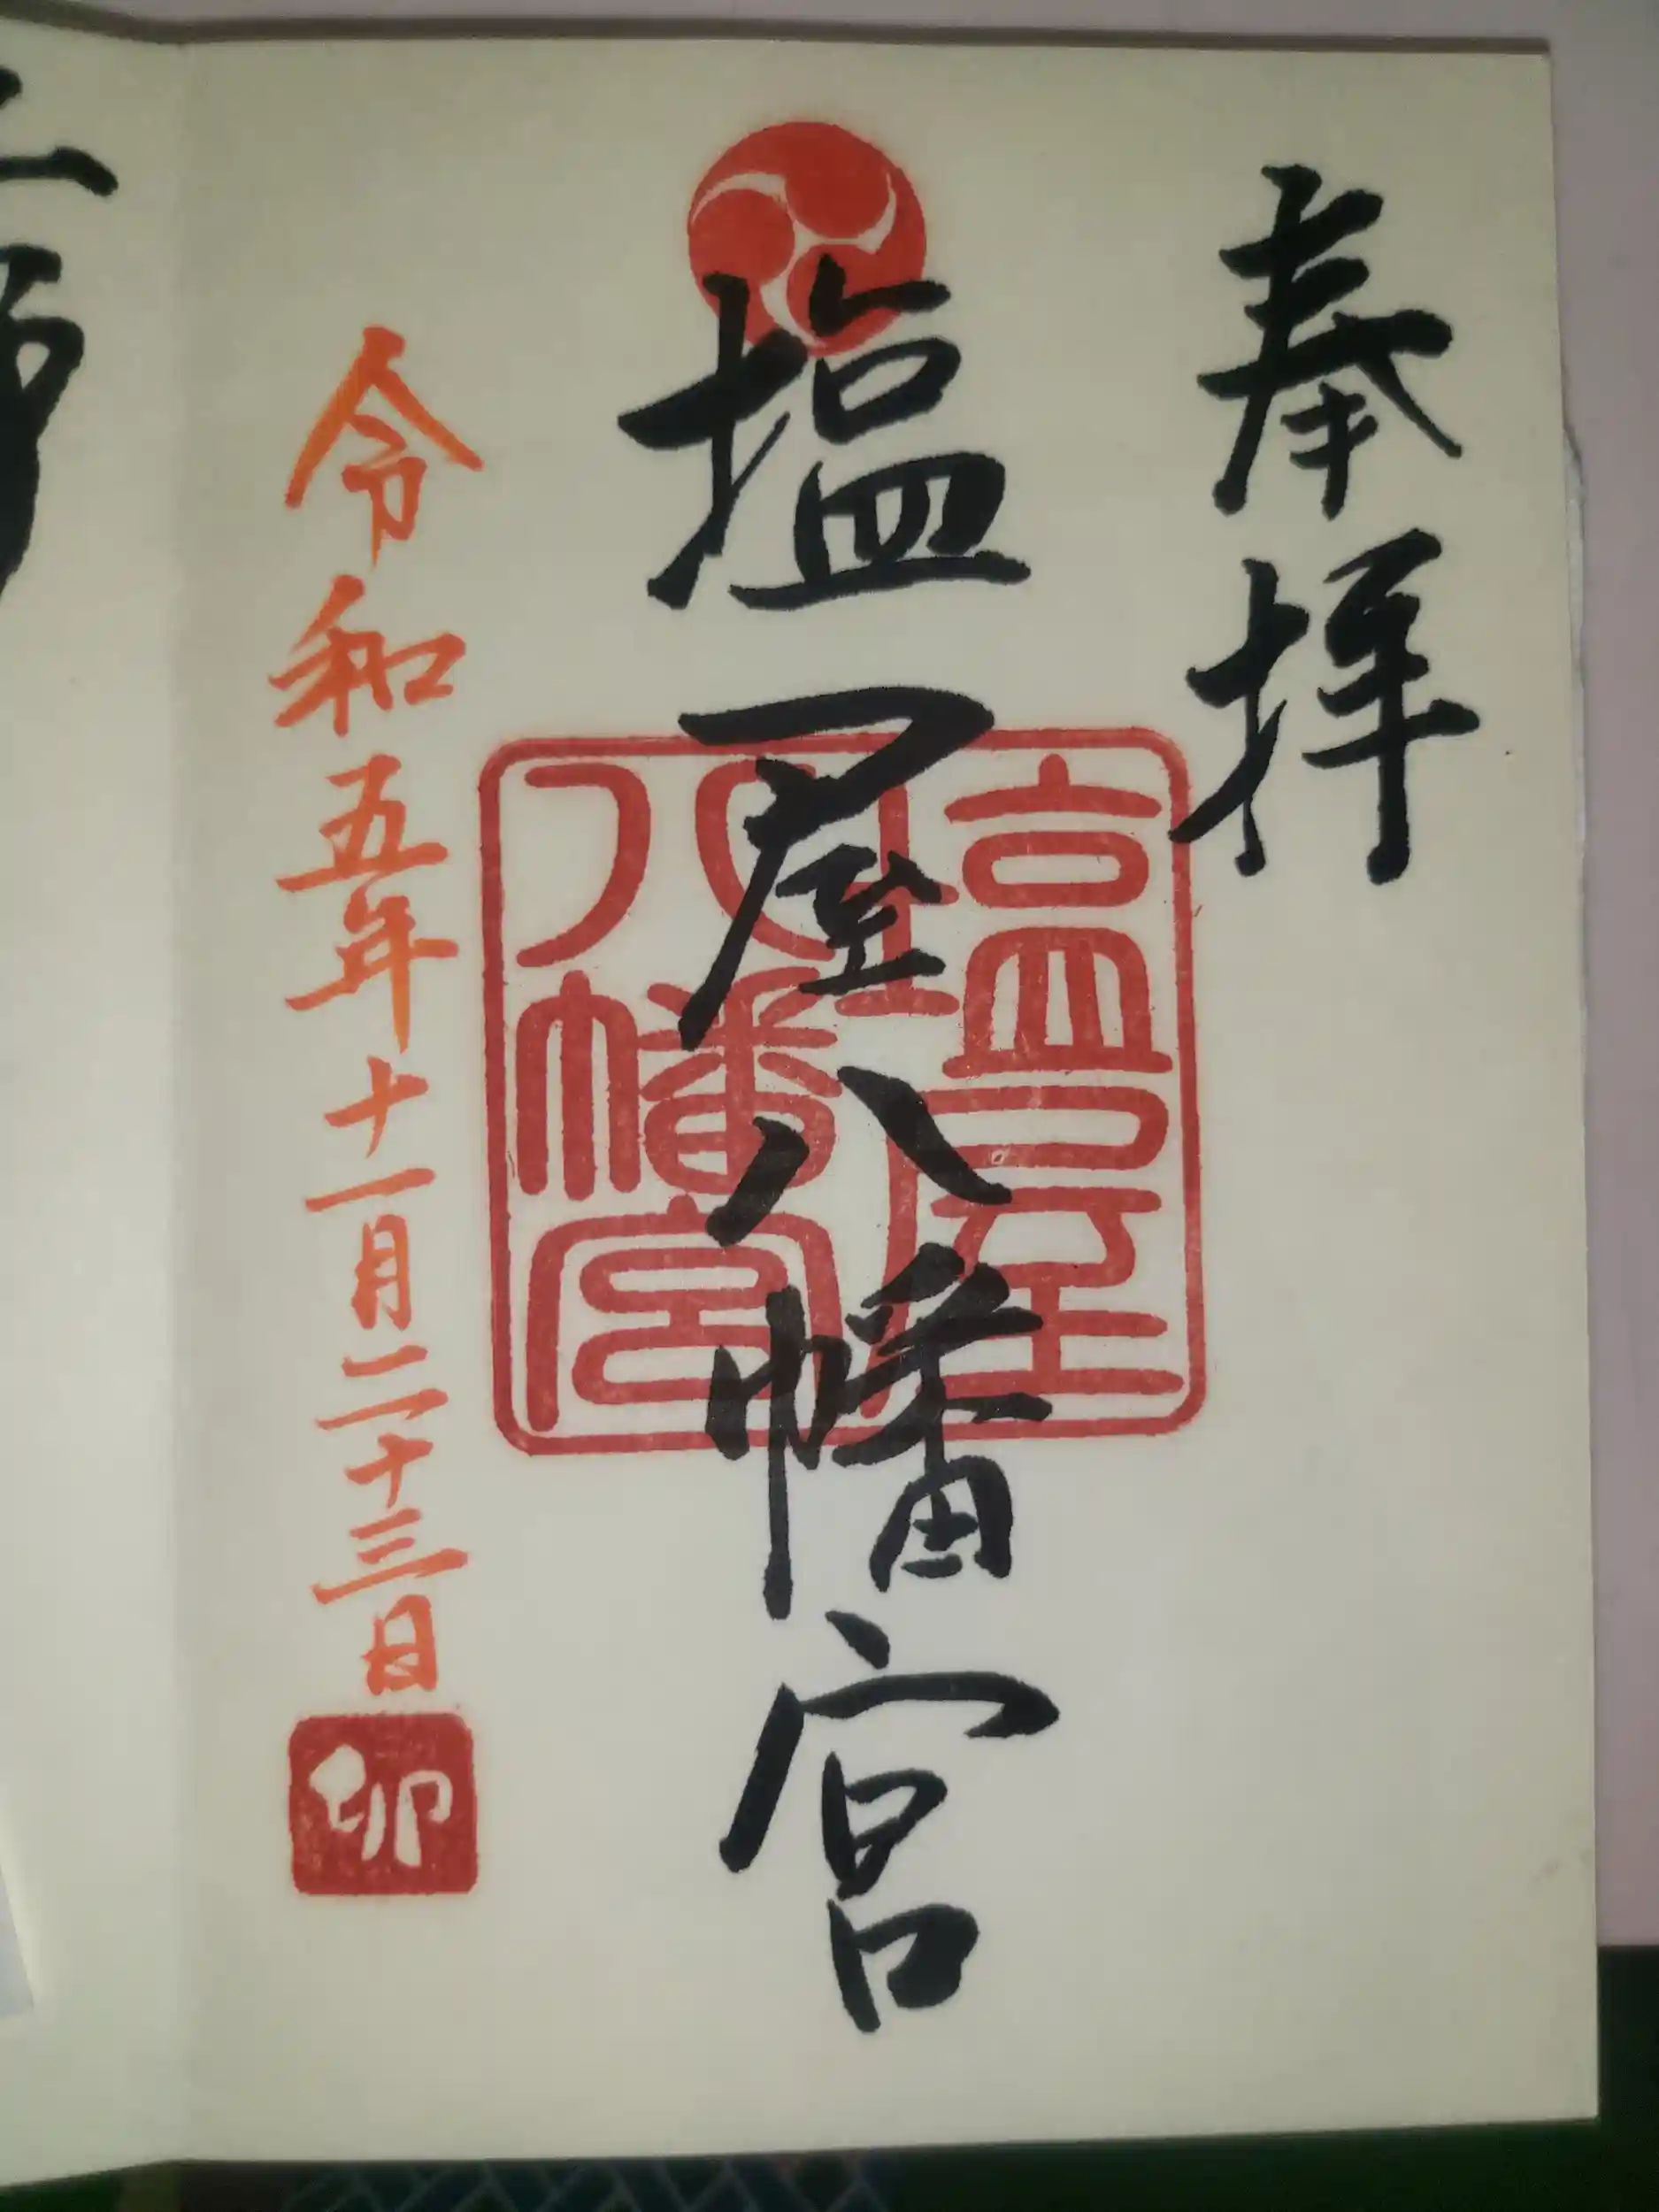 奉拝
塩屋八幡宮
鹽屋
八幡宮
令和五年十一月二十三日
卯